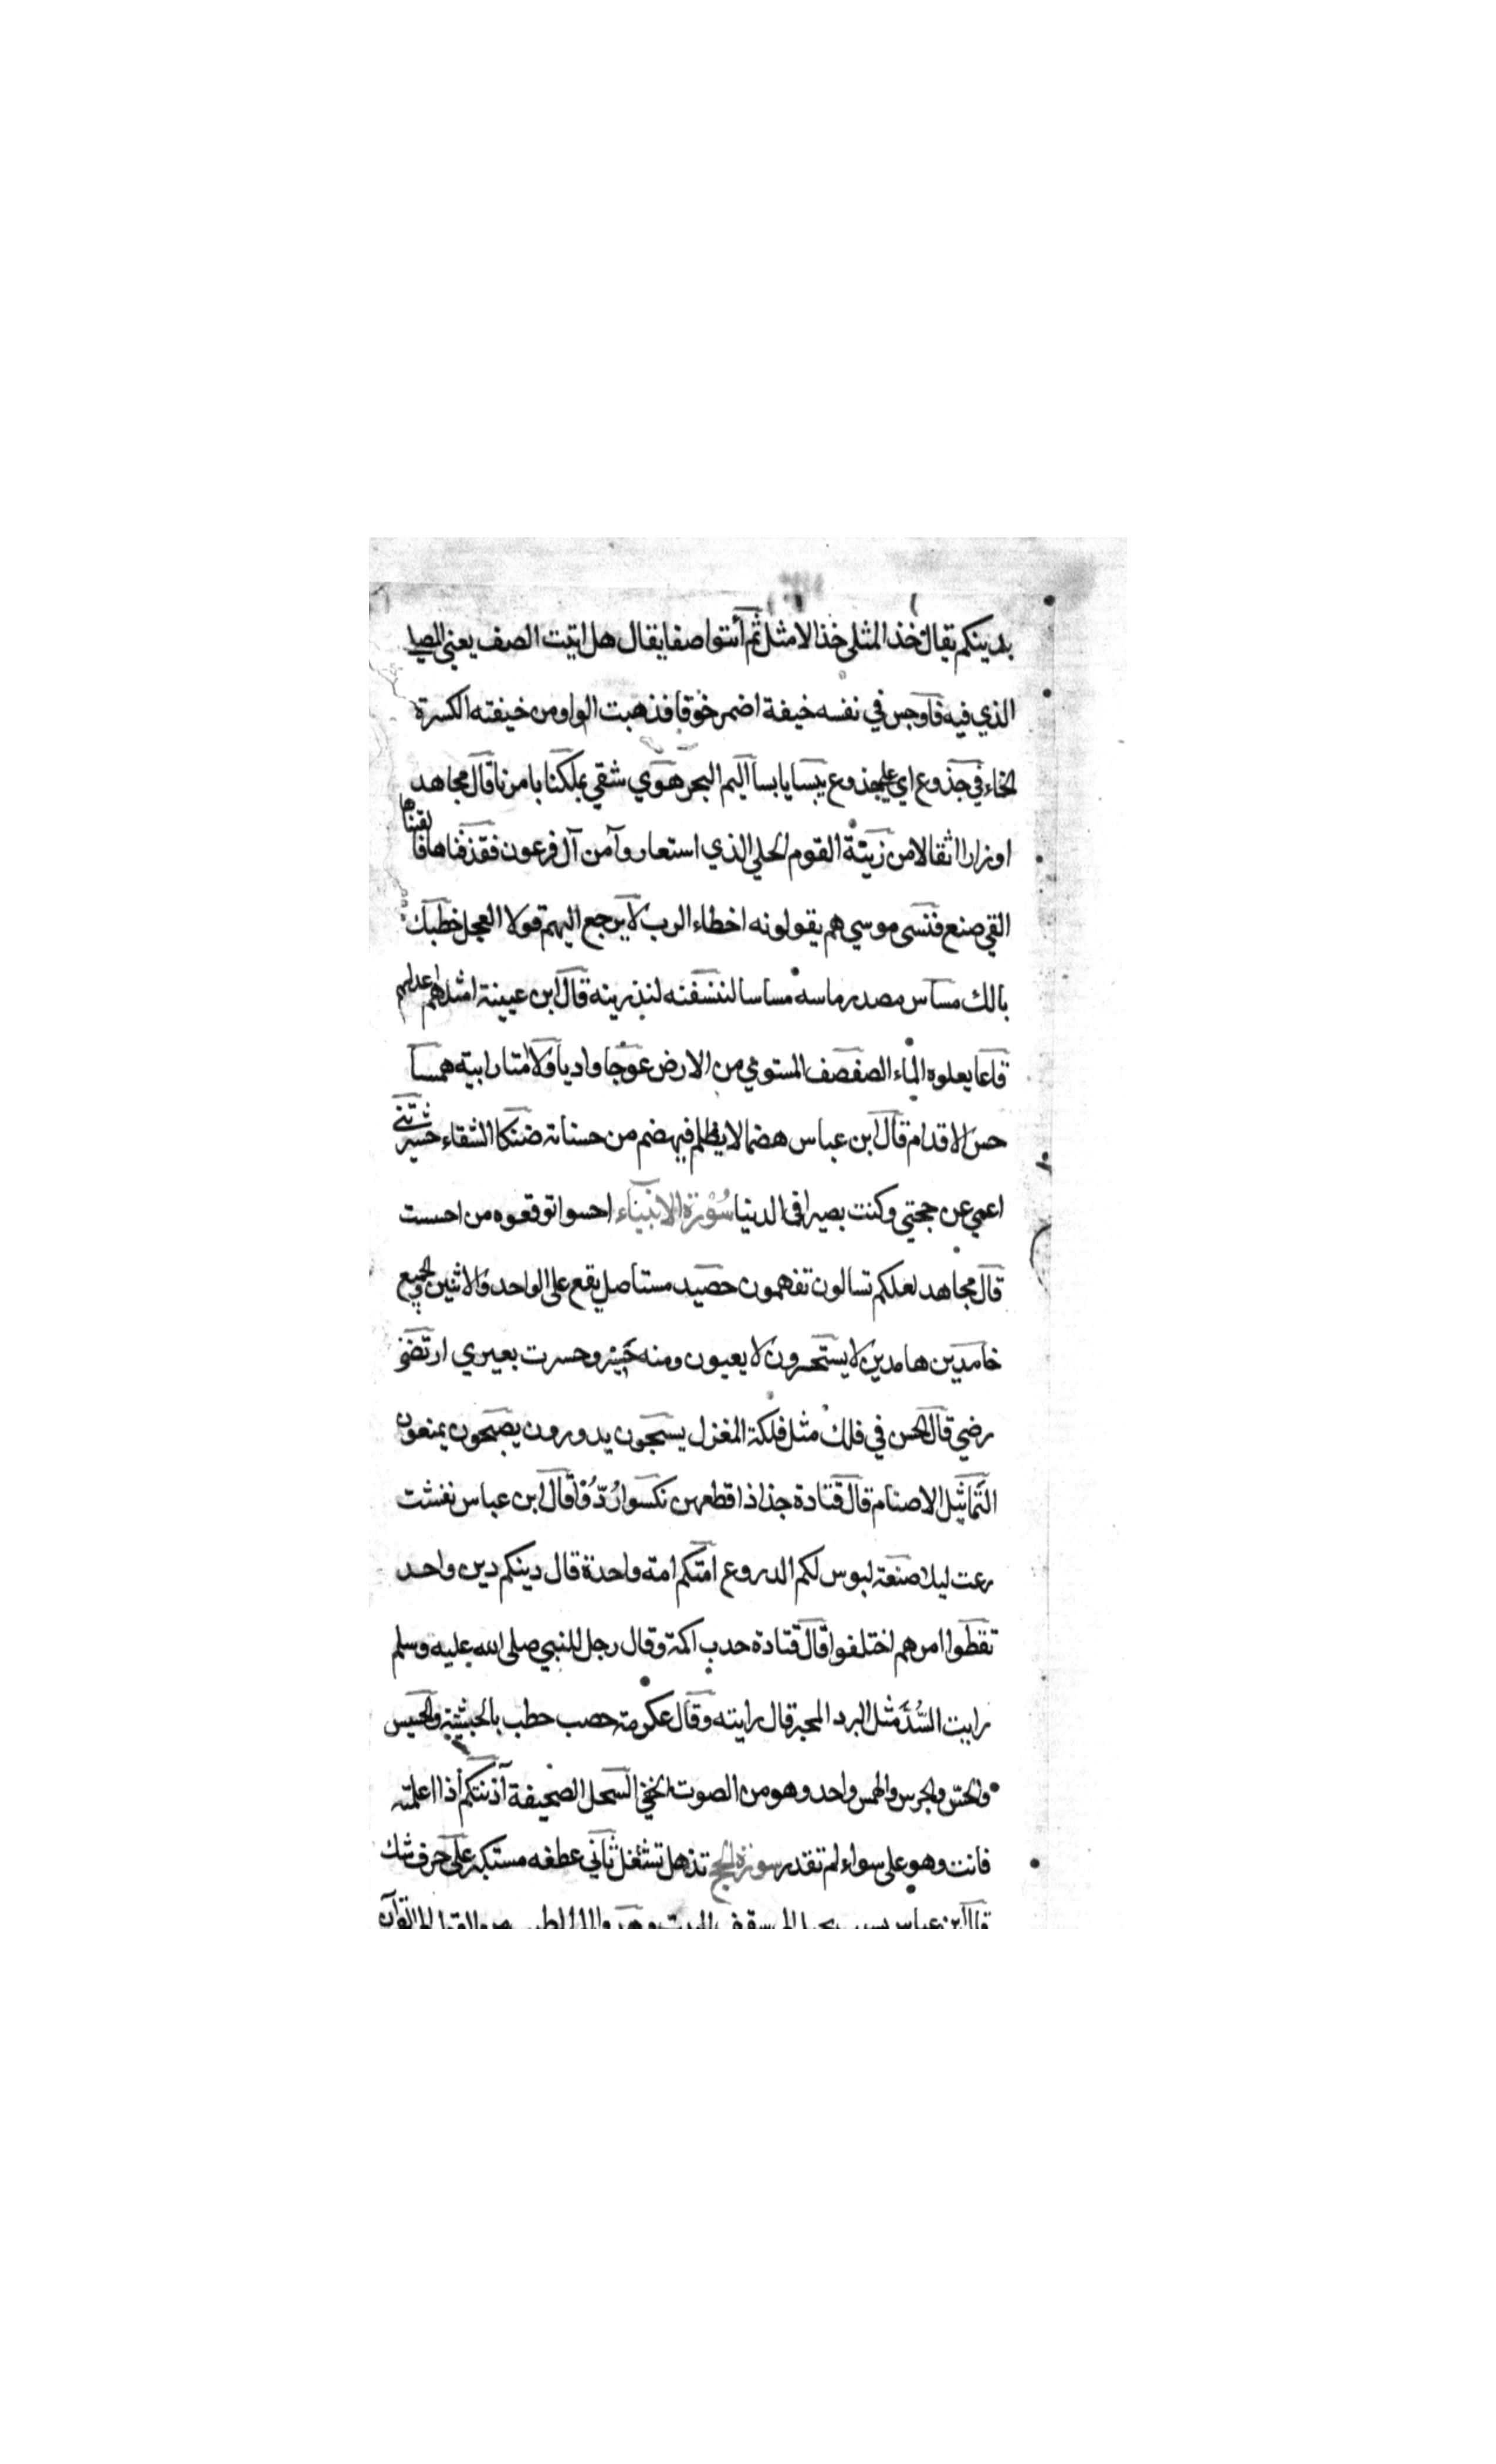 بدينكم يقال خذ المثلى خذ الامثل ثم أئتوا صفا يقال هل اتيت الصف يعني المصلى
الذي فيه فاوجس في نفسه خيفة اضمر خوفا فذهبت الواو من خيفته الكسرة
الخاء في جذوع اي على جذوع يبسا يابسا اليم البحر هوي شقي بملكنا بامرنا قال مجاهد
اوزارا اثقالا من زينة القوم الحلي الذي استعاروا من آل فرعون فقذفناها فالقيناها
القي صنع فنسى موسي هم يقولونه اخطاء الرب لا يرجع اليهم قولا العجل خطبك
بالك مساس مصدر ماسه مساسا لننسفنه لنذرينه قال ابن عيينة امثلهم اعدلهم
قاعا يعلوه الماء الصفصف المستوي من الارض عوجا واديا ولا امتا رابية همسا
حس الاقدام قال ابن عباس هضما لا يظلم فيهضم من حسناته ضنكا الشقاء حشرتني
اعمي عن حجتي وكنت بصيرا في الدنيا سورة الانبياء احسوا توقعوه من احسست
قال مجاهد لعلكم تسالون تفهمون حصيد مستاصل يقع على الواحد والاثنين والجميع
خامدين هامدين لا يستحسرون لا يعيون ومنه حسير وحسرت بعيري ارتضى
رضي قال الحسن في فلك مثل فلكة المغزل يسبحون يدورون يصحبون يمنعون
التماثيل الاصنام قال قتادة جذاذا قطعهن نكسوا رُدّوا قال ابن عباس نفشت
رعت ليلا صنعة لبوس لكم الدروع امتكم امة واحدة قال دينكم دين واحد
تقطعوا امرهم اختلفوا قال قتادة حدب اكمة وقال رجل للنبي صلى الله عليه وسلم
رايت السُّدَّ مثل البرد المحبر قال رايته وقال عكرمة حصب حطب بالحبشية والحسيس
والحس والجرس والهمس واحد وهو من الصوت الخفي السجل الصحيفة آذنتكم أذا اعلمته
فانت وهو على سواء لم تغدر سورة الحج تذهل تشغل ثاني عطفه مستكبر على حرف شك
قال ابن عباس بسبب بحبل الى سقف البيت وهدوا الى الطيب من القول الى القرآن